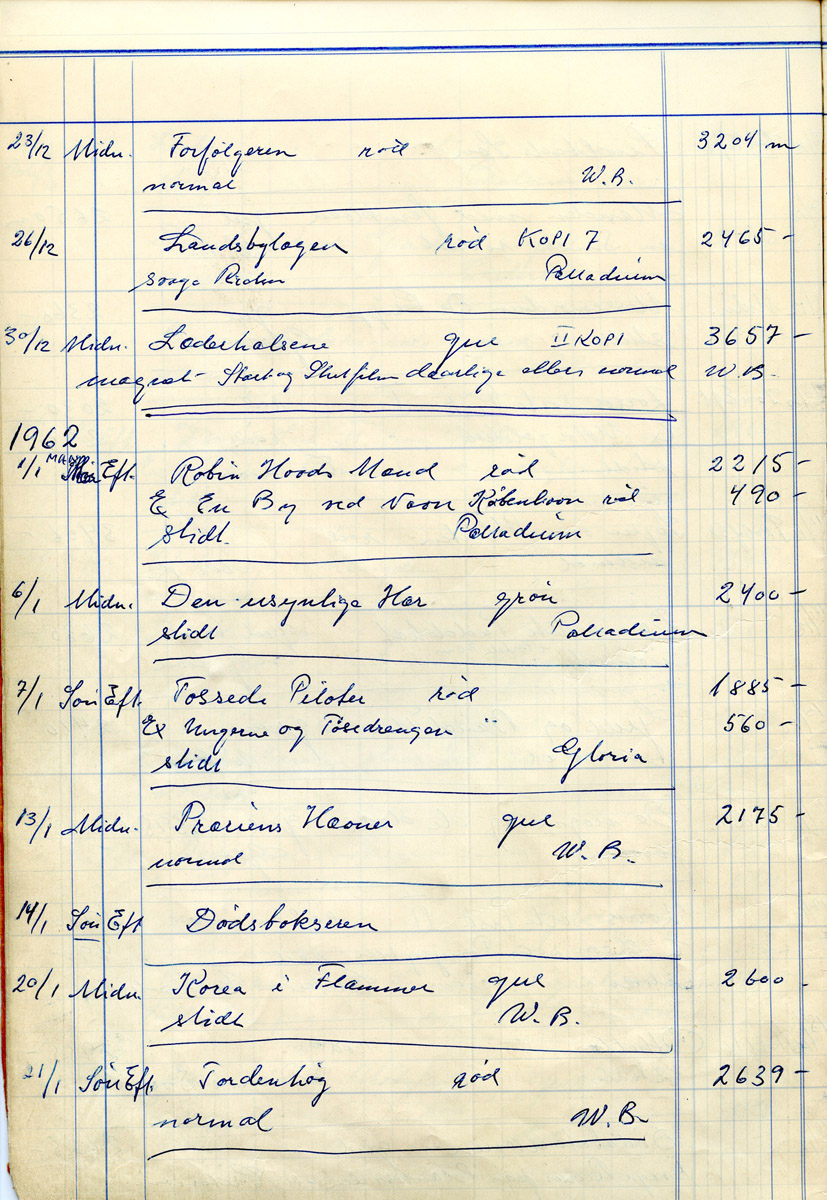 23/12 Midn. Forfølgeren rød 3204 m
normal W.B.
26/12 Landsbylægen rød KOPI 7 2465 -
svage Palladium
30/12 Midn. Loderhalsene gul II KOPI 3657 -
Start og Slutfilm daarlige ellers normal W.B.
1962
1/1 Eft. Robin Hoods Mænd rød 2215 -
Ex En By ved Navn København rød 490 -
slidt. Palladium
6/1 Midn. Den usynlige Hær grøn 2400 -
slidt Palladium
7/1 Søn Eft. Tossede Piloter rød 1885 -
Ex Ungerne og Tøsedrengen " 560 -
slidt Gloria
13/1 Midn. Præriens Hævner gul 2175 -
normal W.B.
14/1 Søn Eft Dødsbokseren
20/1 Midn. Korea i Flammer gul 2600 -
slidt W.B.
21/1 Søn Eft. Tordenhøg rød 2639 -
normal W.B.